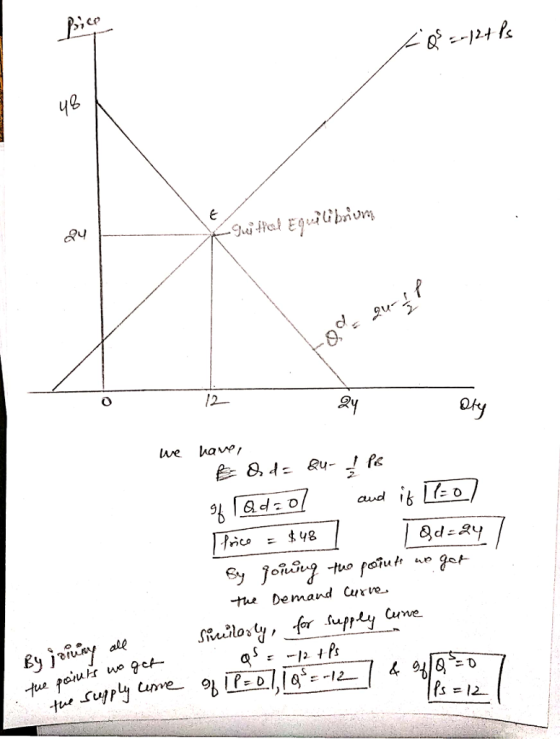 Price
Q^s = -12 + Ps
48
E
24
Initial Equilibrium
Q^d = 24 - 1/2 P
0 12 24 Qty
we have,
Qd = 24 - 1/2 PB
If Qd = 0 and if P = 0
Price = $48 Qd = 24
By joining two points we get
the Demand Curve.
Similarly, for Supply Curve
Q^s = -12 + Ps
If P = 0, Q^s = -12 & If Q^s = 0
Ps = 12
By joining all
the points we get
the Supply Curve